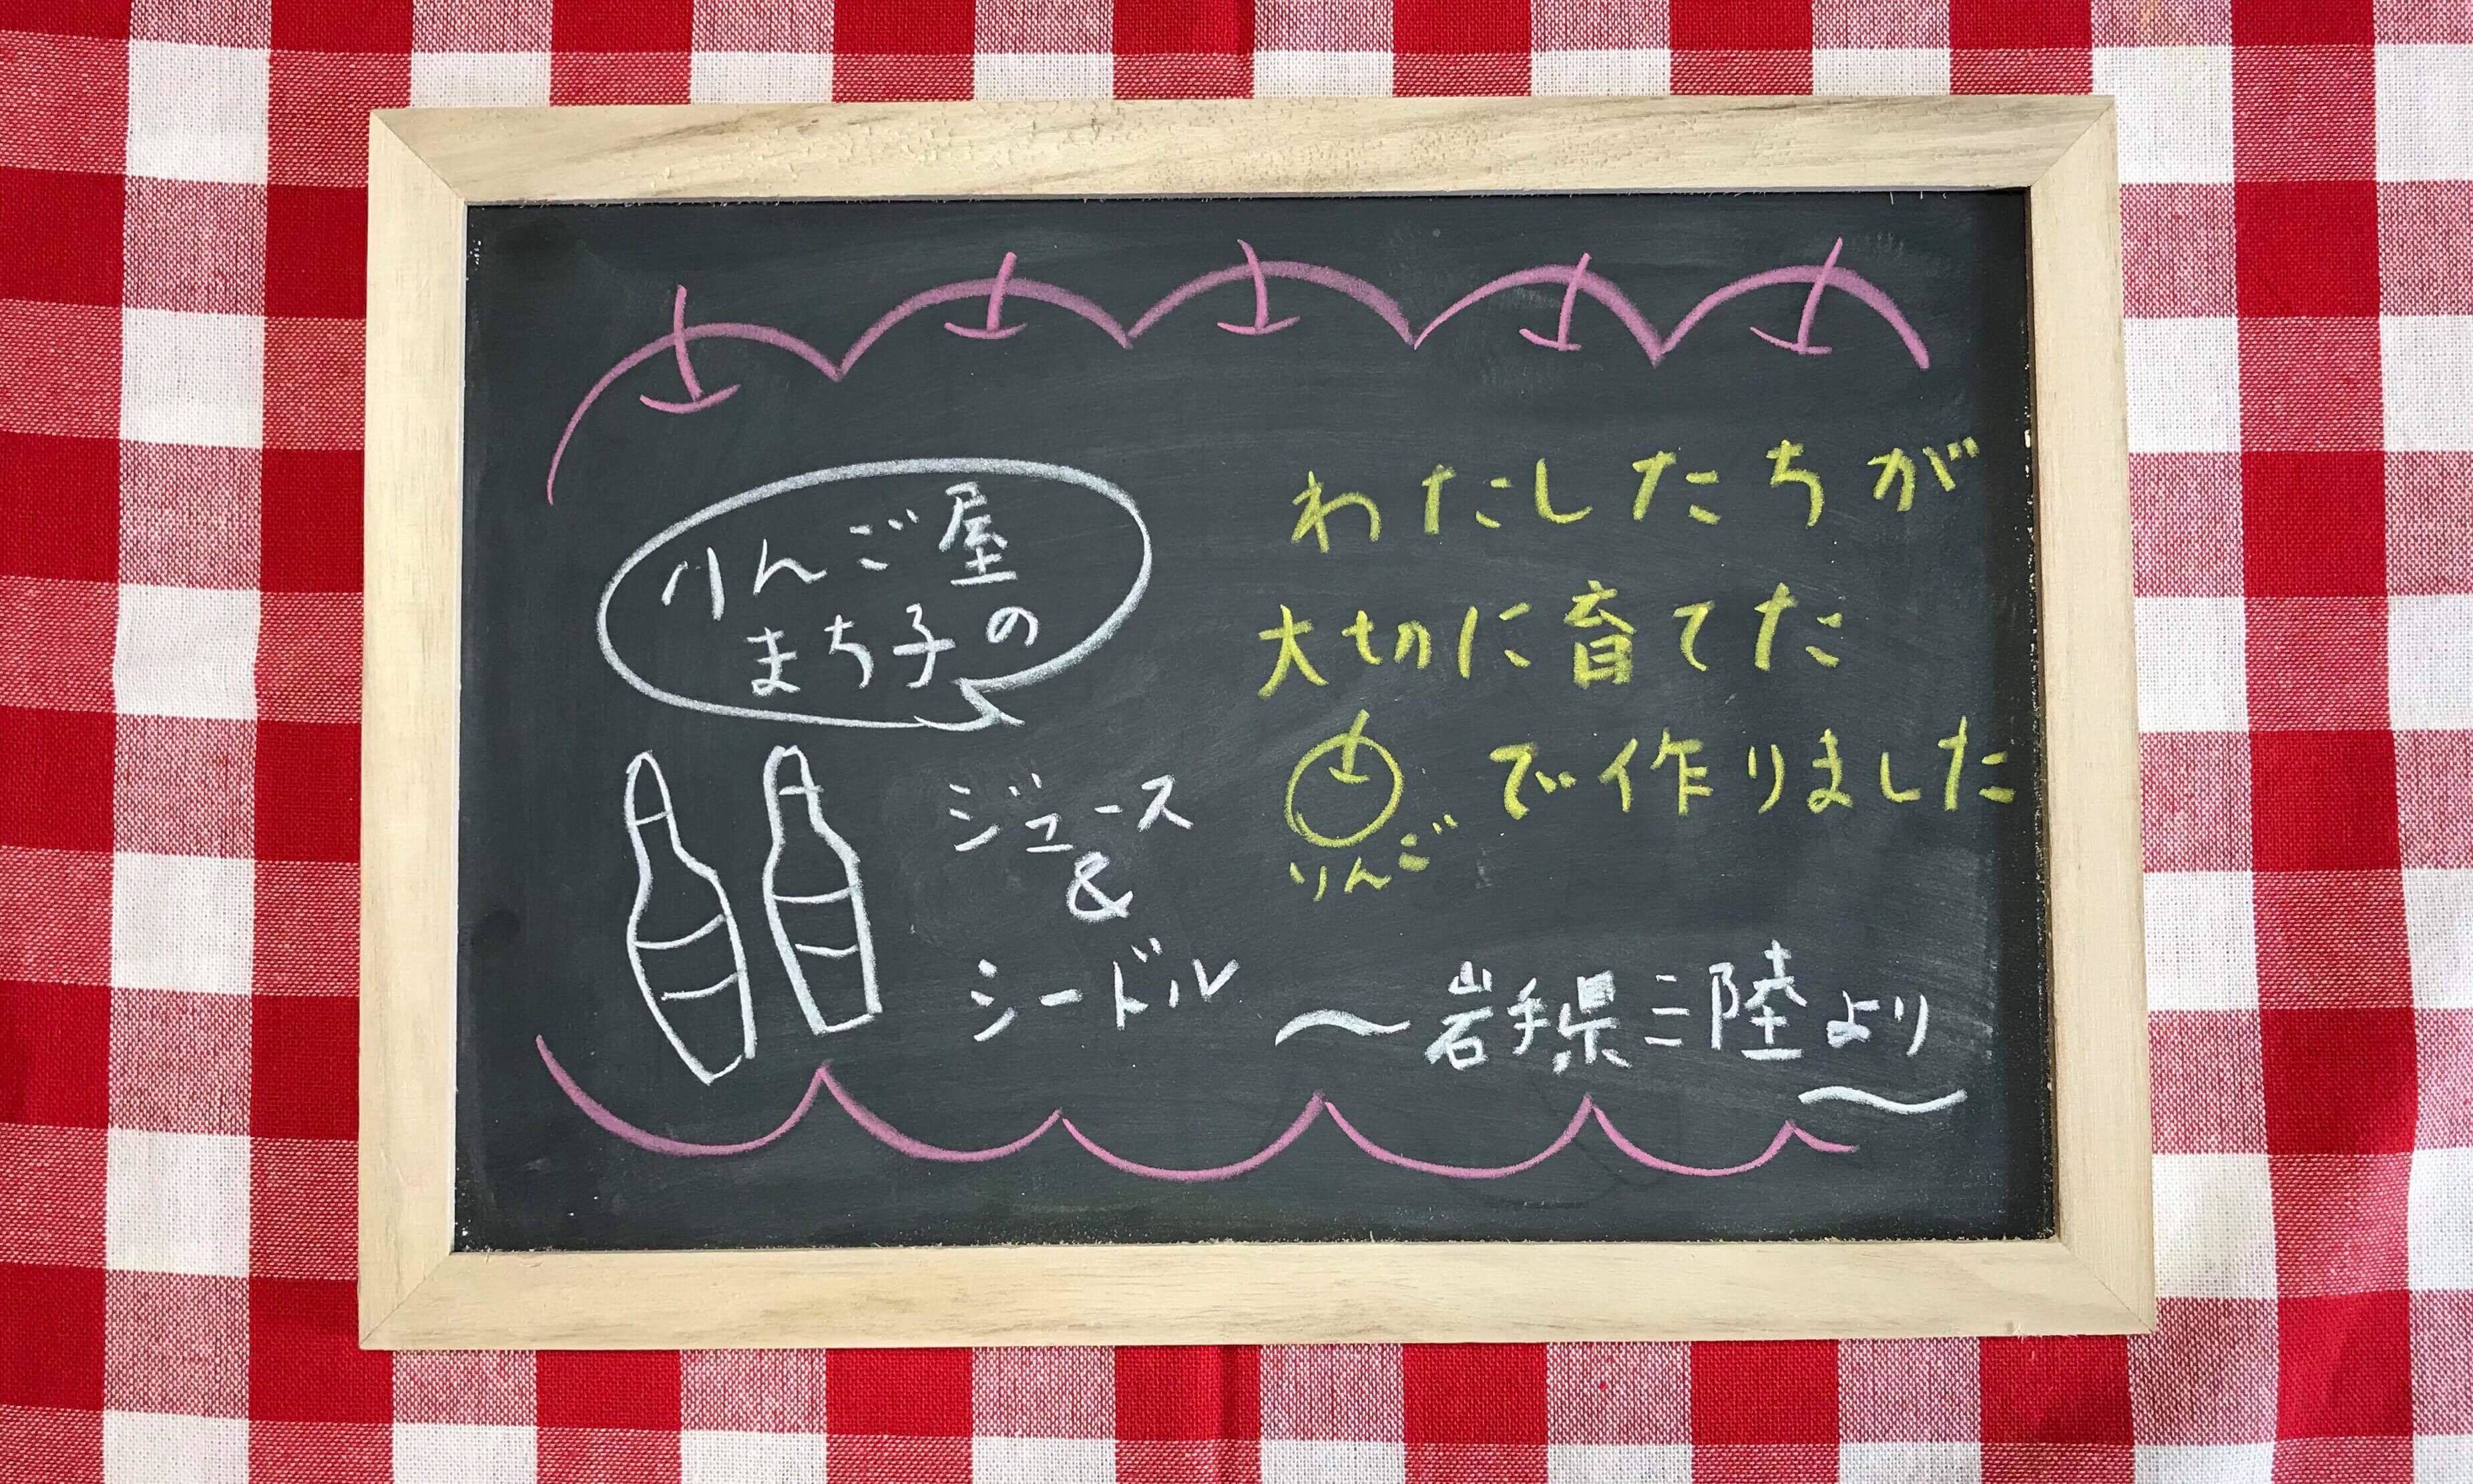 りんご屋
まち子の
ジュース
&
シードル
わたしたちが
大切に育てた
で作りました
りんご
〜岩手県三陸より〜